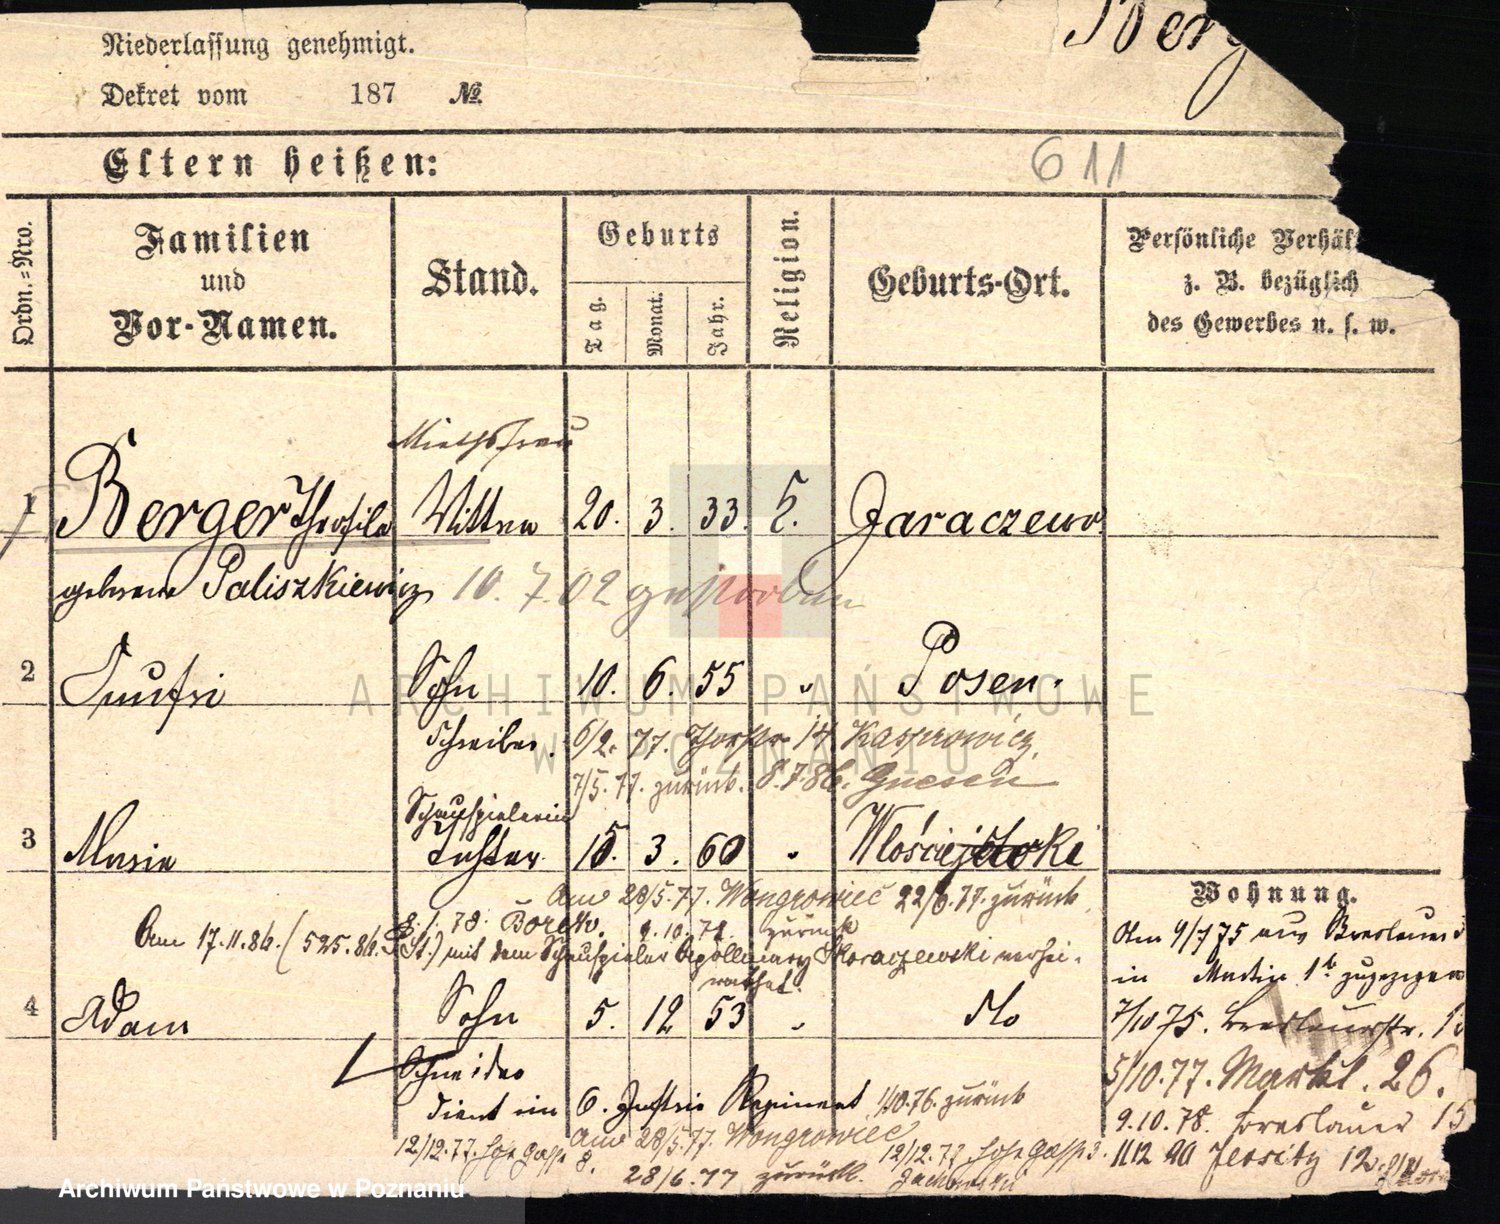 Berg
Niederlassung genehmigt.
Dekret vom 187 №
Eltern heißen:
611
Ordn.=Nro.
Familien
und
Vor-Namen.
Stand.
Geburts
Tag.
Monat.
Jahr.
Religion.
Geburts-Ort.
Persönliche Verhäl
z. B. bezüglich
des Gewerbes u. s. w.
Miethsfrau
1 Berger Theofila Wittwe 20. 3. 33. Jaraczewo
geborene Paliszkiewicz 10. 7. 02 gestorben
2 Sohn 10. 6. 55 " Posen.
Schreiber. 6/2. 77. 14. Kasprowicz.
7/5. 77. zurück. 8.7.86. Gnesen
Schauspielerin
3 Maria Tochter 15. 3. 60 "
Am 28/5.77. Wongrowiec 22/6.77. zurück
8.1.78. Borek. 9.10.78. zurück
Am 17.11.86. (525.86. St.) mit dem Schauspieler Apollinary Skoraczewski verhei-
rathet.
4 Adam Sohn 5. 12 53 " do
Schneider
dient im 6. Inftrie Regiment 1/10.76. zurück
Am 28/5.77. Wongrowiec
12/12.77. Hohe Gasse 8.
28/6.77 zurück.
12/12.77 Hohe Gasse 3.
Wohnung.
Am 4/7 75 aus Breslauer
in Martin 1 b zugezogen
7/10 75. Breslauerstr. 15
5/10.77. Markt. 26.
9.10.78. Breslauer 15
11.12 90 Jersitz 12.
ARCHIWUM PAŃSTWOWE
W POZNANIU
Archiwum Państwowe w Poznaniu